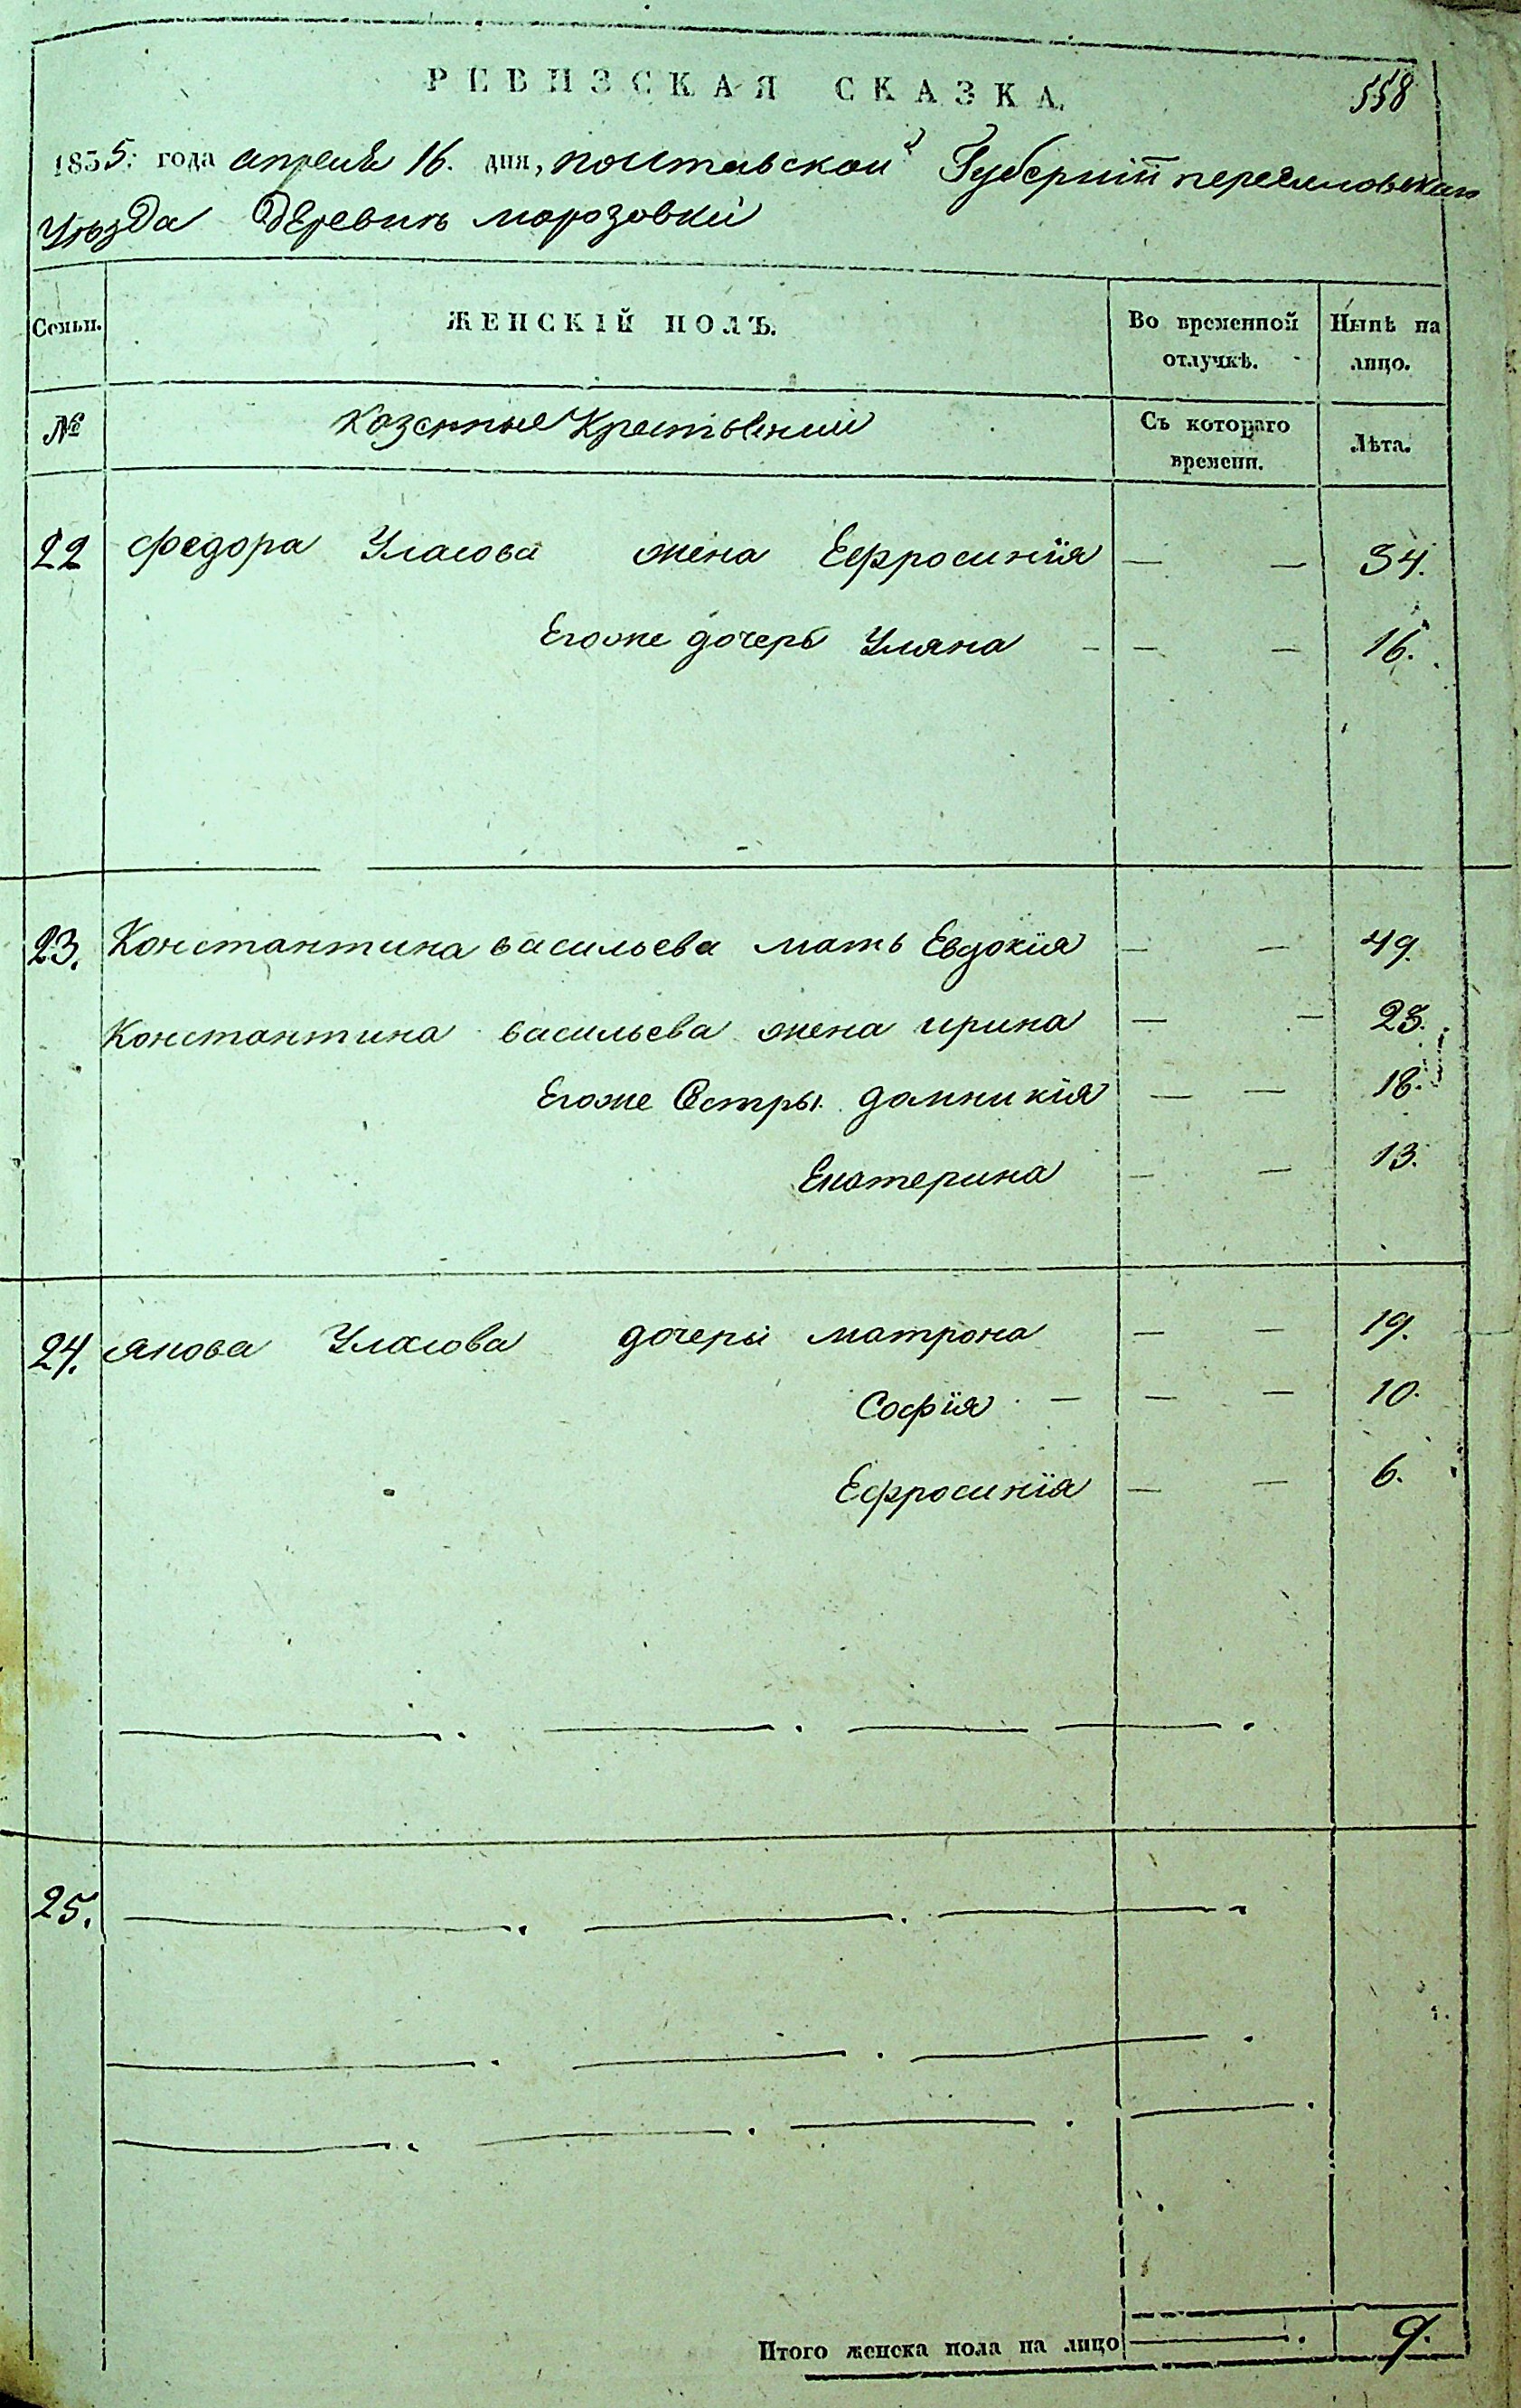 РЕВИЗСКАЯ СКАЗКА.
558
1835. года апреля 16. дня, полтавской Губернии переяславскаго
Уезда Деревни морозовки
Семьи. ЖЕНСКІЙ ПОЛЪ. Во временной отлучкѣ. Нынѣ на лицо.
№ Казенные Крестьянии Съ котораго времени. Лѣта.
22 Федора Уласова жена Ефросинїя — — 34.
Егоже дочерь Уляна - — — 16.
23. Константина васильева мать Евдокїя — — 49.
Константина васильева жена ирина — — 23.
Егоже Сестры домникїя — — 18.
Екатерина — — 13.
24. якова Уласова дочери матрона — — 19.
Софїя — — — 10.
Ефросинїя — — 6.
25.
Итого женска пола на лицо — 9.